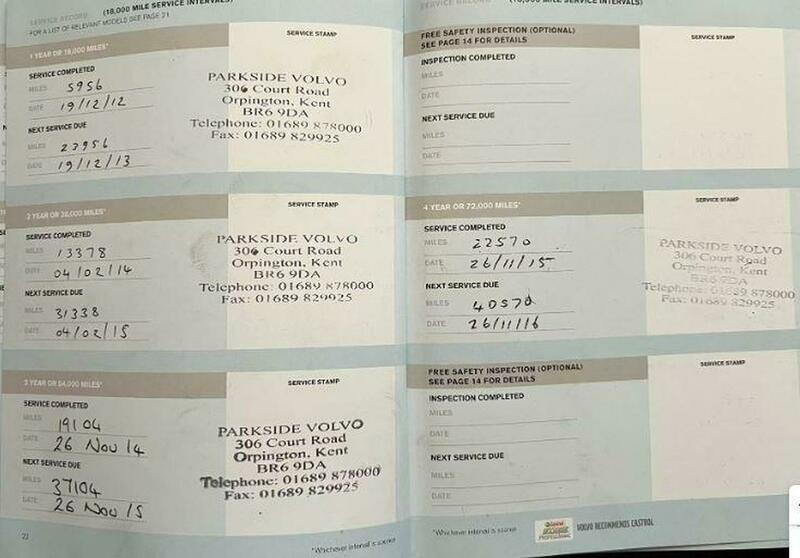 SERVICE RECORD (18,000 MILE SERVICE INTERVALS)
FOR A LIST OF RELEVANT MODELS SEE PAGE 21
SERVICE STAMP
1 YEAR OR 18,000 MILES*
SERVICE COMPLETED
MILES 5956
DATE 19/12/12
NEXT SERVICE DUE
MILES 23956
DATE 19/12/13
PARKSIDE VOLVO
306 Court Road
Orpington, Kent
BR6 9DA
Telephone: 01689 878000
Fax: 01689 829925
2 YEAR OR 36,000 MILES*
SERVICE STAMP
SERVICE COMPLETED
MILES 13378
DATE 04/02/14
NEXT SERVICE DUE
MILES 31338
DATE 04/02/15
PARKSIDE VOLVO
306 Court Road
Orpington, Kent
BR6 9DA
Telephone: 01689 878000
Fax: 01689 829925
3 YEAR OR 54,000 MILES*
SERVICE STAMP
SERVICE COMPLETED
MILES 19104
DATE 26 Nov 14
NEXT SERVICE DUE
MILES 37104
DATE 26 Nov 15
PARKSIDE VOLVO
306 Court Road
Orpington, Kent
BR6 9DA
Telephone: 01689 878000
Fax: 01689 829925
22
*Whichever interval is sooner
SERVICE RECORD (18,000 MILE SERVICE INTERVALS)
FREE SAFETY INSPECTION (OPTIONAL)
SEE PAGE 14 FOR DETAILS
SERVICE STAMP
INSPECTION COMPLETED
MILES
DATE
NEXT SERVICE DUE
MILES
DATE
4 YEAR OR 72,000 MILES*
SERVICE STAMP
SERVICE COMPLETED
MILES 22570
DATE 26/11/15
NEXT SERVICE DUE
MILES 40570
DATE 26/11/16
PARKSIDE VOLVO
306 Court Road
Orpington, Kent
BR6 9DA
Telephone: 01689 878000
Fax: 01689 829925
FREE SAFETY INSPECTION (OPTIONAL)
SEE PAGE 14 FOR DETAILS
SERVICE STAMP
INSPECTION COMPLETED
MILES
DATE
NEXT SERVICE DUE
MILES
DATE
*Whichever interval is sooner
Castrol
PROFESSIONAL
VOLVO RECOMMENDS CASTROL